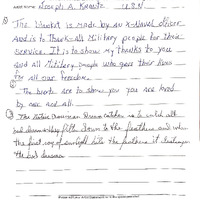 Joseph A. Kravitz U.S.N.
① The blanket is made by an X-Naval officer
and is to thank all Military people for their
service. It is to show my thanks to you
and all Military people who gave their lives
for all our freedom.
② The hearts are to show you you are loved
by one and all.
③ The Native American Dream catcher is to catch all
bad dreams
down to the feathers and when
the first ray of sunlight hits the feathers it destroys
the bad dreams